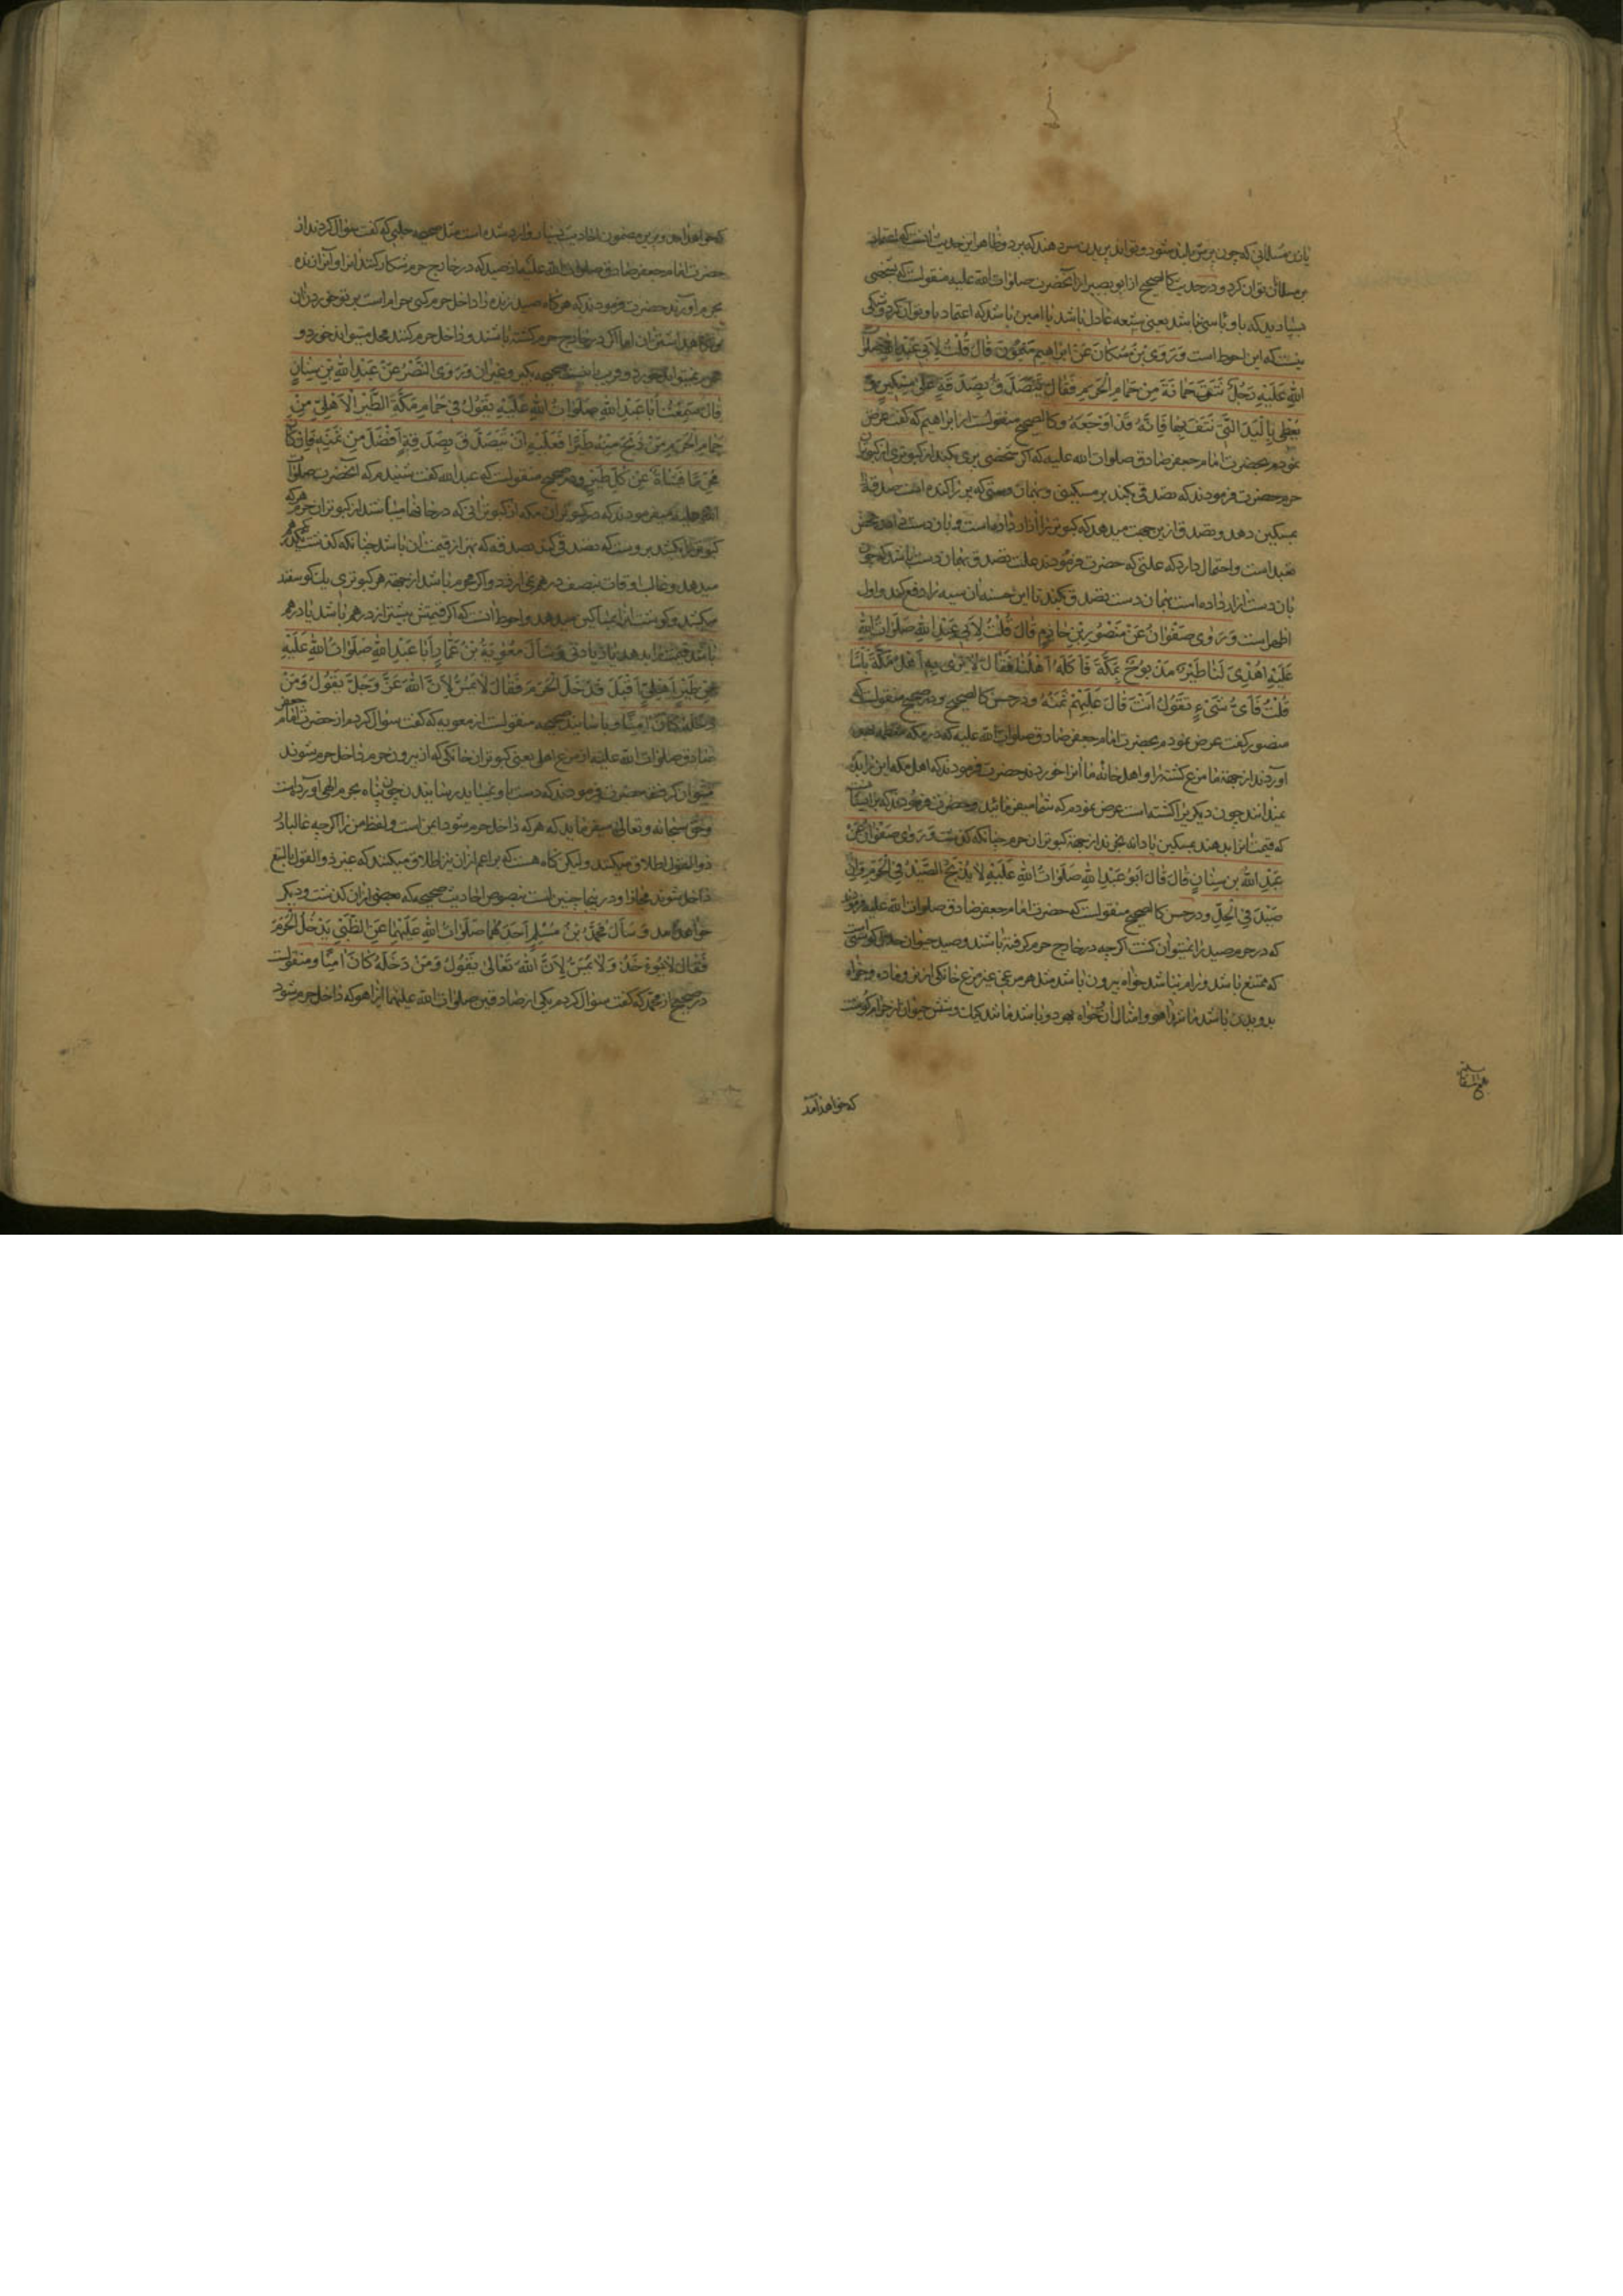 یا زن مسلمانی که چون پرش بلند شود و تواند پریدن سر دهند که برد و ظاهر این حدیث آنست که اعتماد
بر مسلمانان توان کرد و در حدیث کالصحیح از ابو بصیر از آنحضرت صلوات الله علیه منقولست که بشخصی
بسپارید که باو باسی نباشد یعنی شیعه عادل باشد یا امین باشد که اعتماد باو توان کرد و شکی
نیست که این احوط است وَ رَوَی بْنُ مُسْکَانَ عَنْ اِبْرَاهِیمَ بْنِ مَیْمُونٍ قَالَ قُلْتُ لِاَبِی عَبْدِ اللهِ صَلَوَاتُ
اللهِ عَلَیْهِ رَجُلٌ نَتَفَ حَمَامَةً مِنْ حَمَامِ الْحَرَمِ فَقَالَ یَتَصَدَّقُ بِصَدَقَةٍ عَلَی مِسْکِینٍ وَ
یُعْطِی بِالْیَدِ الَّتِی نَتَفَ بِهَا فَاِنَّهُ قَدْ اَوْجَعَهُ وکالصحیح منقولست از ابراهیم که گفت عرض
نمودم بحضرت امام جعفر صادق صلوات الله علیه که اگر شخصی پری بکند از کبوتری از کبوتران
حرم حضرت فرمودند که تصدقی بکند بر مسکینی و بهمان دستی که پر را کنده است صدقه را
بمسکین دهد و تصدق ازین جهت میدهد که کبوتر را آزار داده است و بان دست دادن محض
تعبد است و احتمال دارد که علتی که حضرت فرمودند علت تصدق بهمان دست باشد که چون
بان دست ازار داده است بهمان دست تصدق بکند تا این حسنه ان سیئه را دفع کند و اول
اظهر است وَ رَوَی صَفْوَانُ عَنْ مَنْصُورِ بْنِ حَازِمٍ قَالَ قُلْتُ لِاَبِی عَبْدِ اللهِ صَلَوَاتُ اللهِ
عَلَیْهِ اُهْدِیَ لَنَا طَیْرٌ مَذْبُوحٌ بِمَکَّةَ فَاَکَلَهُ اَهْلُنَا فَقَالَ لَا یَرَی بِهِ اَهْلُ مَکَّةَ بَاْسًا
قُلْتُ فَاَیُّ شَیْءٍ تَقُولُ اَنْتَ قَالَ عَلَیْهِمْ ثَمَنُهُ و در حسن کالصحیح و در صحیح منقولست که
منصور گفت عرض نمودم بحضرت امام جعفر صادق صلوات الله علیه که در مکه معظمه
اوردند از جهة ما مرغ کشته را و اهل خانه ما آنرا خوردند حضرت فرمودند که اهل مکه این را بد
نمیدانند چون دیگری را کشته است عرض نمودم که شما چه میفرمائید حضرت فرمودند که بر ایشانست
که قیمت انرا بدهند بمسکین یا دانه بخرند از جهة کبوتران حرم چنانکه گذشت وَ رَوَی صَفْوَانُ عَنْ
عَبْدِ اللهِ بْنِ سِنَانٍ قَالَ قَالَ اَبُو عَبْدِ اللهِ صَلَوَاتُ اللهِ عَلَیْهِ لَا یُذْبَحُ الصَّیْدُ فِی الْحَرَمِ وَ اِنْ
صِیدَ فِی الْحِلِّ و در حسن کالصحیح منقولست که حضرت امام جعفر صادق صلوات الله علیه فرمودند
که در حرم صید را نمیتوان کشت اگر چه در خارج حرم گرفته باشند و صید حیوان حلال گوشتی است
که ممتنع باشد و رام نباشد خواه بپرون باشد مثل هر مرغی غیر مرغ خانگی از نر و ماده و خواه
بدویدن باشد مانند اهو و امثال آن و خواه بهر دو باشد مانند کبک و شش حیوان از حرام گوشت
که خواهد آمد
که خواهد آمد و برین مضمون احادیث بسیار وارد شده است مثل صحیحه حلبی که گفت سؤال کردند از
حضرت امام جعفر صادق صلوات الله علیه از صیدی که در خارج حرم شکار کنند انرا و آنرا زنده
بحرم اورند حضرت فرمودند که هر گاه صید زنده را داخل حرم کنی حرام است بر تو خوردن ان
اما اگر در خارج حرم کشته باشند و داخل حرم کنند محل میتواند خورد و
محرم نمیتواند خورد و قریب باینست صحیحه بکیر و غیر ان وَ رَوَی النَّضْرُ عَنْ عَبْدِ اللهِ بْنِ سِنَانٍ
قَالَ سَمِعْتُ اَبَا عَبْدِ اللهِ صَلَوَاتُ اللهِ عَلَیْهِ یَقُولُ فِی حَمَامِ مَکَّةَ الطَّیْرُ الْاَهْلِیُّ مِنْ
حَمَامِ الْحَرَمِ مَنْ ذَبَحَ مِنْهُ طَیْرًا فَعَلَیْهِ اَنْ یَتَصَدَّقَ بِصَدَقَةٍ اَفْضَلَ مِنْ ثَمَنِهِ فَاِنْ کَانَ
مُحْرِمًا فَشَاةٌ عَنْ کُلِّ طَیْرٍ و در صحیح منقولست که عبد الله گفت شنیدم که آنحضرت صلوات
الله علیه میفرمودند که در کبوتران مکه از کبوترانی که در خانها میباشند از کبوتران حرم هر که
کبوتری را بکشد بروست که تصدقی کند بصدقه که بهتر از قیمت ان باشد چنانکه گذشت که یکدرهم
میدهد و غالب اوقات بنصف درهم نمی ارزد و اگر محرم باشد از جهة هر کبوتری یک گوسفند
میکشد و گوشت انرا بمساکین میدهد و احوط آنست که اگر قیمتش بیشتر از درهم باشد یا درهم
باشد قیمتش را بدهد با زیادتی وَ سَاَلَ مُعَوِیَةُ بْنُ عَمَّارٍ اَبَا عَبْدِ اللهِ صَلَوَاتُ اللهِ عَلَیْهِ
عَنْ طَیْرٍ اَهْلِیٍّ اَقْبَلَ فَدَخَلَ الْحَرَمَ فَقَالَ لَا یُمَسُّ لِاَنَّ اللهَ عَزَّ وَ جَلَّ یَقُولُ وَ مَنْ
دَخَلَهُ کَانَ اٰمِنًا و باسانید صحیحه منقولست از معویه که گفت سؤال کردم از حضرت امام جعفر
صادق صلوات الله علیه از مرغ اهلی یعنی کبوتران خانگی که از بیرون حرم داخل حرم شوند
میتوان گرفت حضرت فرمودند که دست باو نمیباید رسانیدن چون پناه بحرم الهی آورده است
و حق سبحانه و تعالی میفرماید که هر که داخل حرم شود ایمن است و لفظ من را اگر چه غالبا در
ذوالعقول اطلاق میکنند و لیکن گاه هست که بر اعم از ان نیز اطلاق میکنند که غیر ذوالعقول بالتبع
داخل شوند مجازا و درینجا چنین است بنصوص احادیث صحیحه که بعضی از ان گذشت و دیگر
خواهد امد وَ سَاَلَ مُحَمَّدُ بْنُ مُسْلِمٍ اَحَدَهُمَا صَلَوَاتُ اللهِ عَلَیْهِمَا عَنِ الظَّبْیِ یَدْخُلُ الْحَرَمَ
فَقَالَ لَا یُؤْخَذُ وَ لَا یُمَسُّ لِاَنَّ اللهَ تَعَالَی یَقُولُ وَ مَنْ دَخَلَهُ کَانَ اٰمِنًا و منقولست
در صحیح از محمد که گفت سؤال کردم یکی از صادقین صلوات الله علیهما از اهو که داخل حرم شود